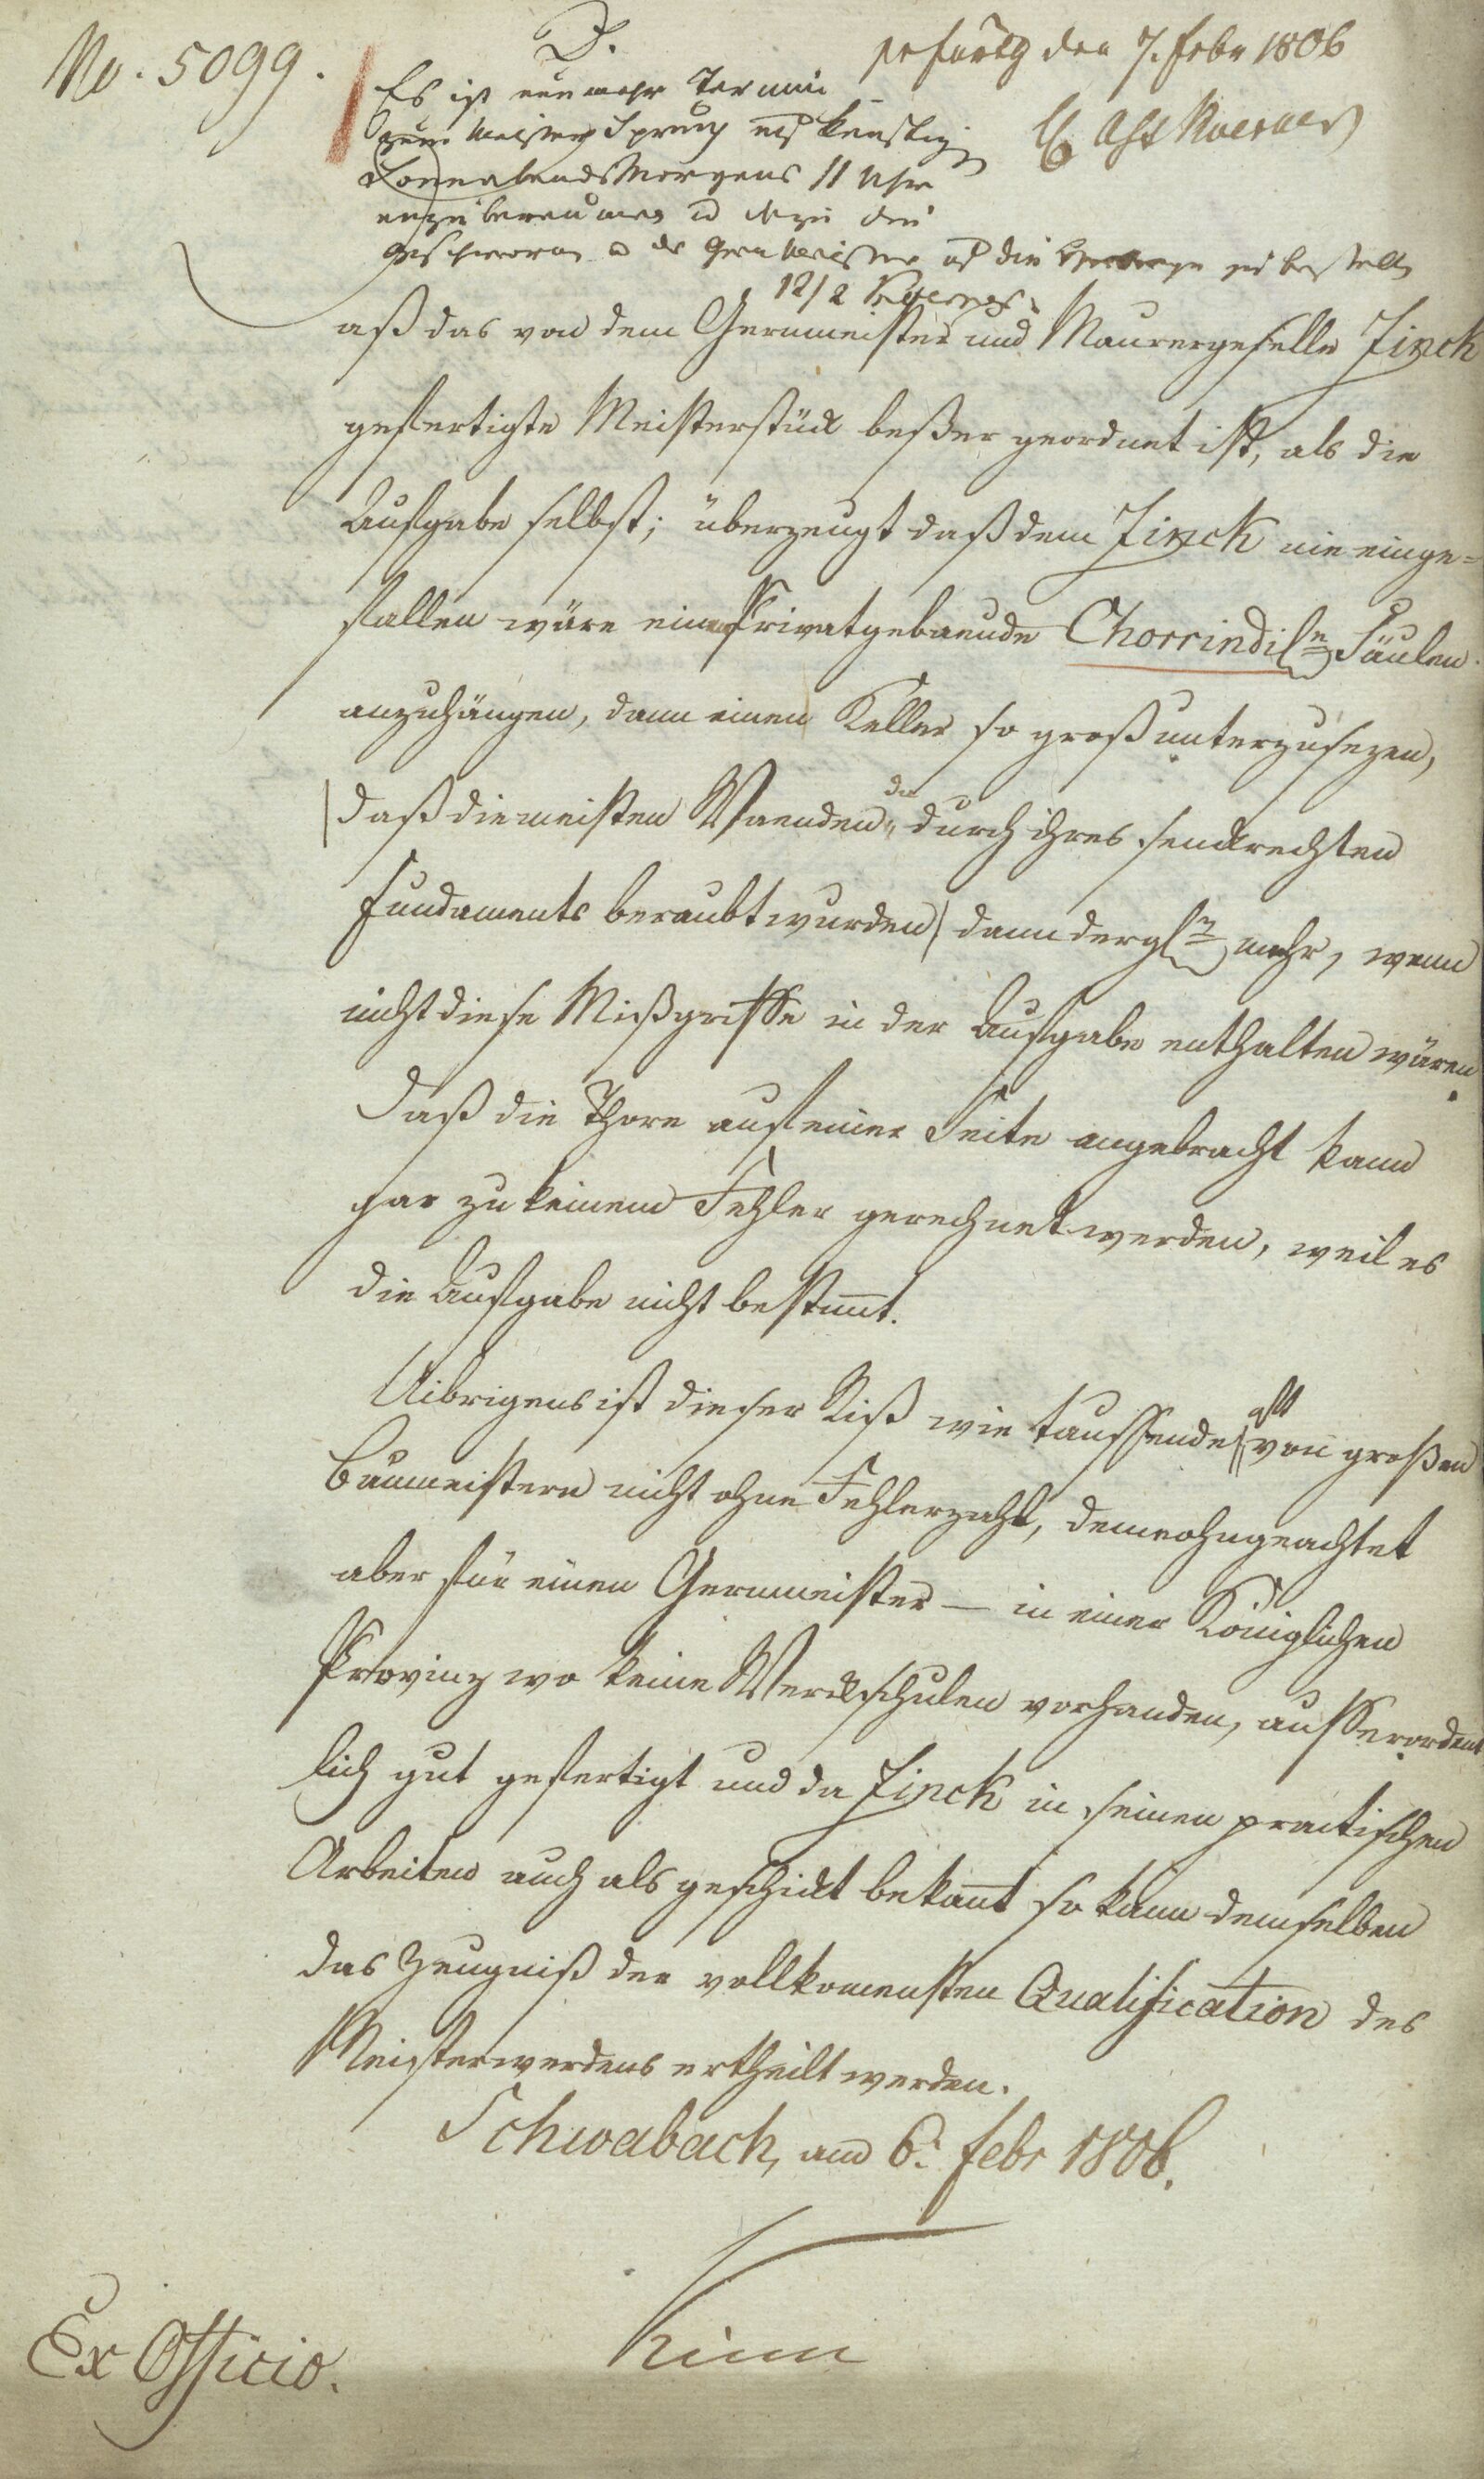 No. 5099.
D.
den 7. Febr 1806
Es ist nunmehr Termin
zum Meister Spruch auf künftigen
Sonnabends Morgens 11 Uhr
anzuberaumen u dazu die
Geschworen u der Germeister auf die zu bestellen
12/2
aß das von dem Germeister und Maurergeselle Zinck
gefertigte Meisterstück beßer geordnet ist, als die
Aufgabe selbst; überzeugt daß dem Zinck nie einge=
fallen wäre einem Privatgebaeude Chorrindisn Säulen
anzuhängen, dann einen Keller so groß unterzusezen,
daß die meisten Waenden dadurch ihres senckrechten
Fundaments beraubt wurden dann dergln mehr, wenn
nicht diese Mißgriffe in der Aufgabe enthalten wären.
Daß die Thore auf einer Seite angebracht kann
gar zu keinem Fehler gerechnet werden, weil es
die Aufgabe nicht bestimt.
Uibrigens ist dieser Riß wie taussende oft von großen
Baumeistern nicht ohne Fehlerzahl, demohngeachtet
aber für einen Germeister – in einer Königlichen
Provinz wo keine Werckschulen vorhanden, ausserordent
lich gut gefertigt und da Zinck in seinen practischen
Arbeiten auch als geschickt bekant so kann demselben
das Zeugniß der vollkomensten Qualification des
Meisterwerdens ertheilt werden.
Schwabach, am 6. Febr 1806.
Keim
Ex Officio.